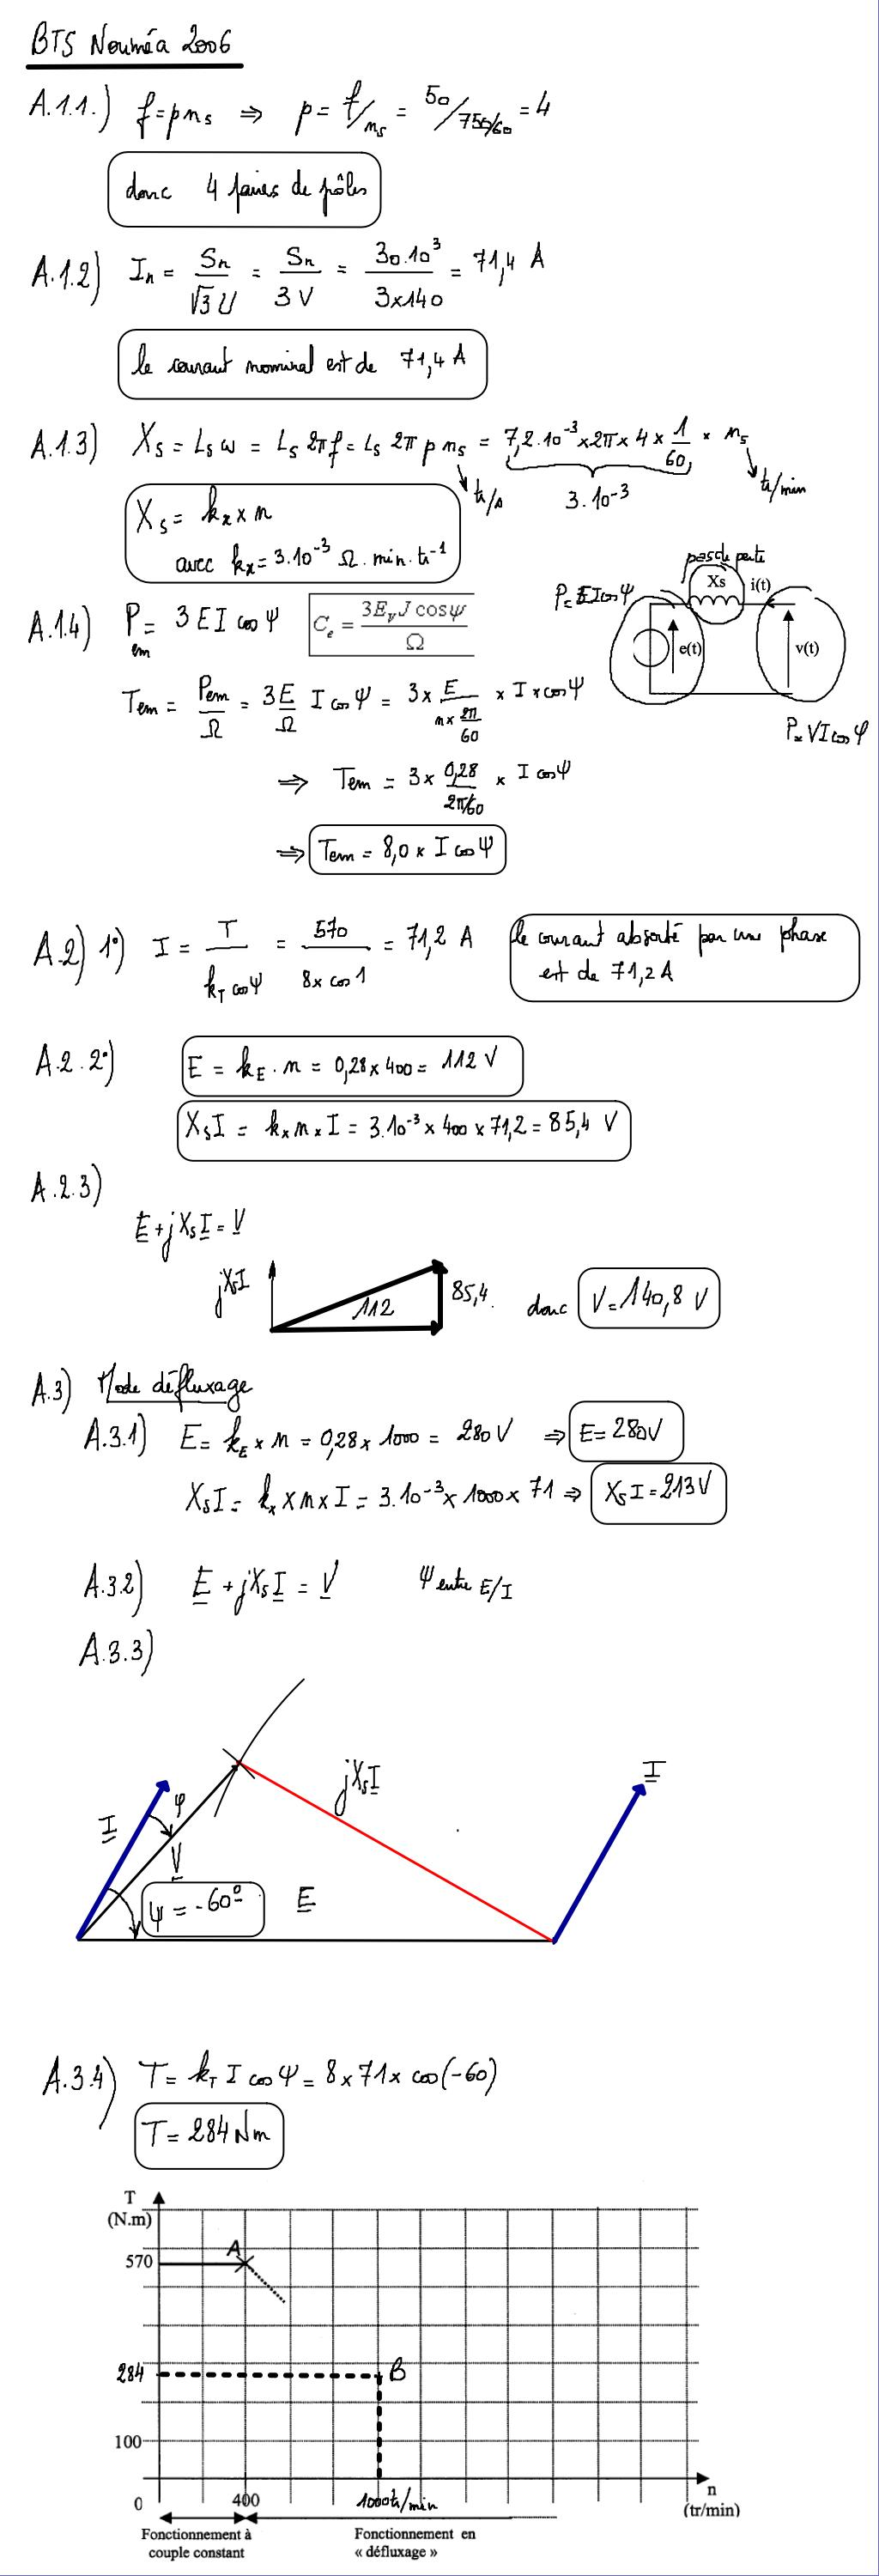 BTS Nouméa 2006
A.1.1.) f = p ns ⇒ p = f/ns = 50/750/60 = 4
donc 4 paires de pôles
A.1.2) In = Sn/√3 U = Sn/3 V = 30.10³/3x140 = 71,4 A
le courant nominal est de 71,4 A
A.1.3) Xs = Ls ω = Ls 2π f = Ls 2π p ns = 7,2.10⁻³ x 2π x 4 x 1/60 x ns
tr/s 3.10⁻³ tr/min
Xs = kx x n
avec kx = 3.10⁻³ Ω.min.tr⁻¹
pas de perte
Xs i(t)
P = EI cos Ψ
e(t) v(t)
P = VI cos φ
A.1.4) Pem = 3 E I cos Ψ Ce = 3EvJ cosψ/Ω
Tem = Pem/Ω = 3E/Ω I cos Ψ = 3 x E/n x 2π/60 x I x cos Ψ
⇒ Tem = 3 x 0,28/2π/60 x I cos Ψ
⇒ Tem = 8,0 x I cos Ψ
A.2) 1°) I = T/kT cos Ψ = 570/8 x cos 1 = 71,2 A le courant absorbé par une phase
est de 71,2 A
A.2.2°) E = kE . n = 0,28 x 400 = 112 V
XsI = kx x n x I = 3.10⁻³ x 400 x 71,2 = 85,4 V
A.2.3)
E + jXsI = V
jXsI 112 85,4. donc V = 140,8 V
A.3) Mode défluxage
A.3.1) E = kE x n = 0,28 x 1000 = 280 V ⇒ E = 280V
XsI = kx x n x I = 3.10⁻³ x 1000 x 71 ⇒ XsI = 213 V
A.3.2) E + jXsI = V Ψ entre E/I
A.3.3)
jXsI I
I φ
V
Ψ = -60° E
A.3.4) T = kT I cos Ψ = 8 x 71 x cos(-60)
T = 284 Nm
T
(N.m)
570 A
284 B
100
0 400 1000tr/min n
(tr/min)
Fonctionnement à
couple constant
Fonctionnement en
« défluxage »